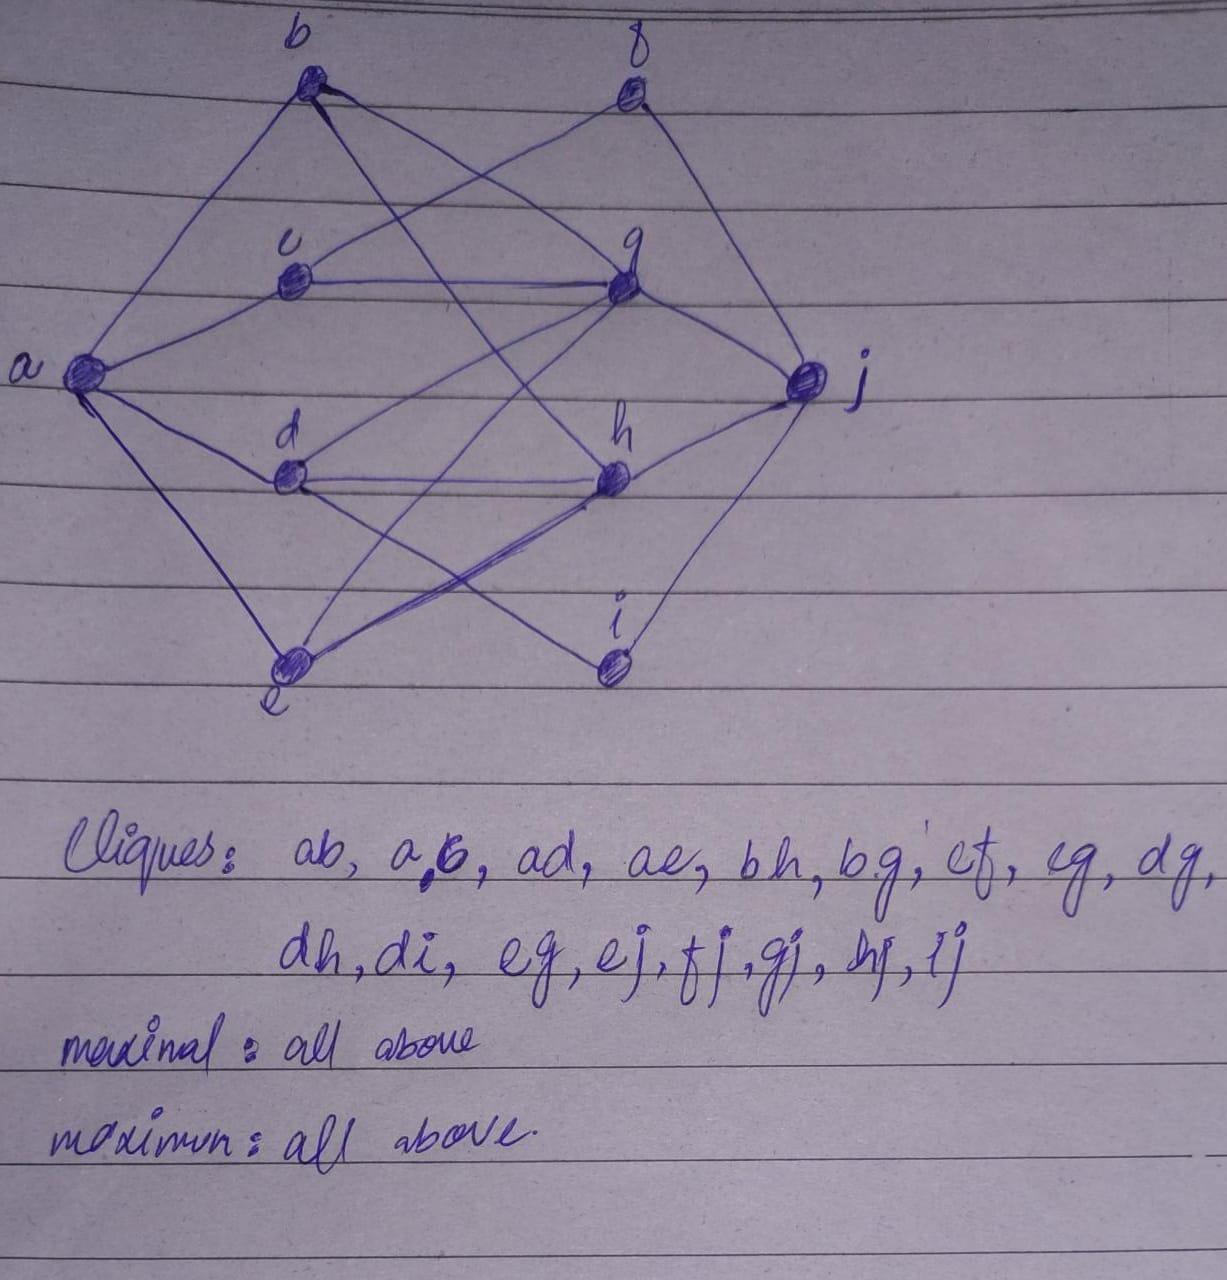 b f
c g
a j
d h
i
e
Cliques: ab, a,c, ad, ae, bh, bg, cf, cg, dg,
dh, di, eg, ej, fj, gj, hj, ij
maximal: all above
maximum: all above.